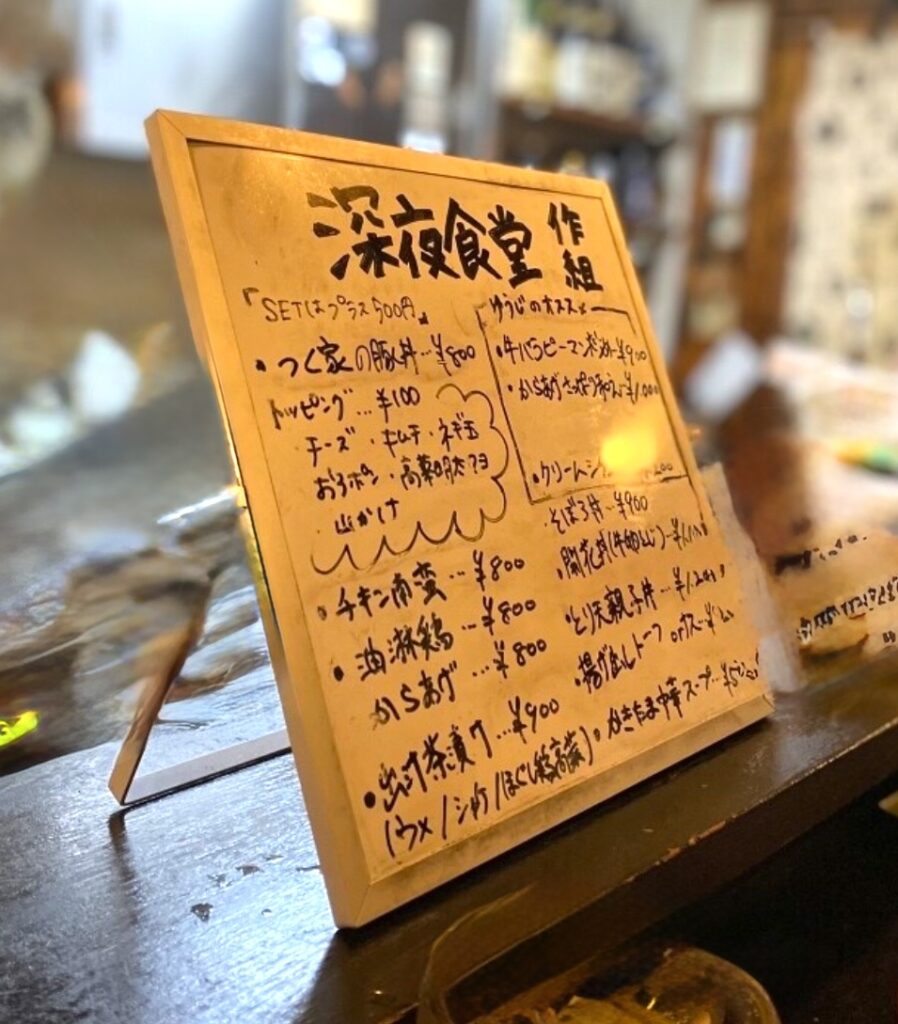 深夜食堂 作組
「SETはプラス500円」
・つく家の豚丼…¥800
トッピング…¥100
チーズ・キムチ・ネギ玉
おろポン・高菜明太マヨ
・山かけ
・チキン南蛮…¥800
・油淋鶏…¥800
からあげ…¥800
・出汁茶漬け…¥900
(ウメ/シャケ/ほぐし
ゆうじのオススメ
・牛バラピーマン ¥900
・からあげ ¥1.000
・クリームシ 200
・そぼろ丼…¥900
開花丼
・とり天親子丼…¥1.200
・揚げ出しトーフ
・かきたま中華スープ…¥500